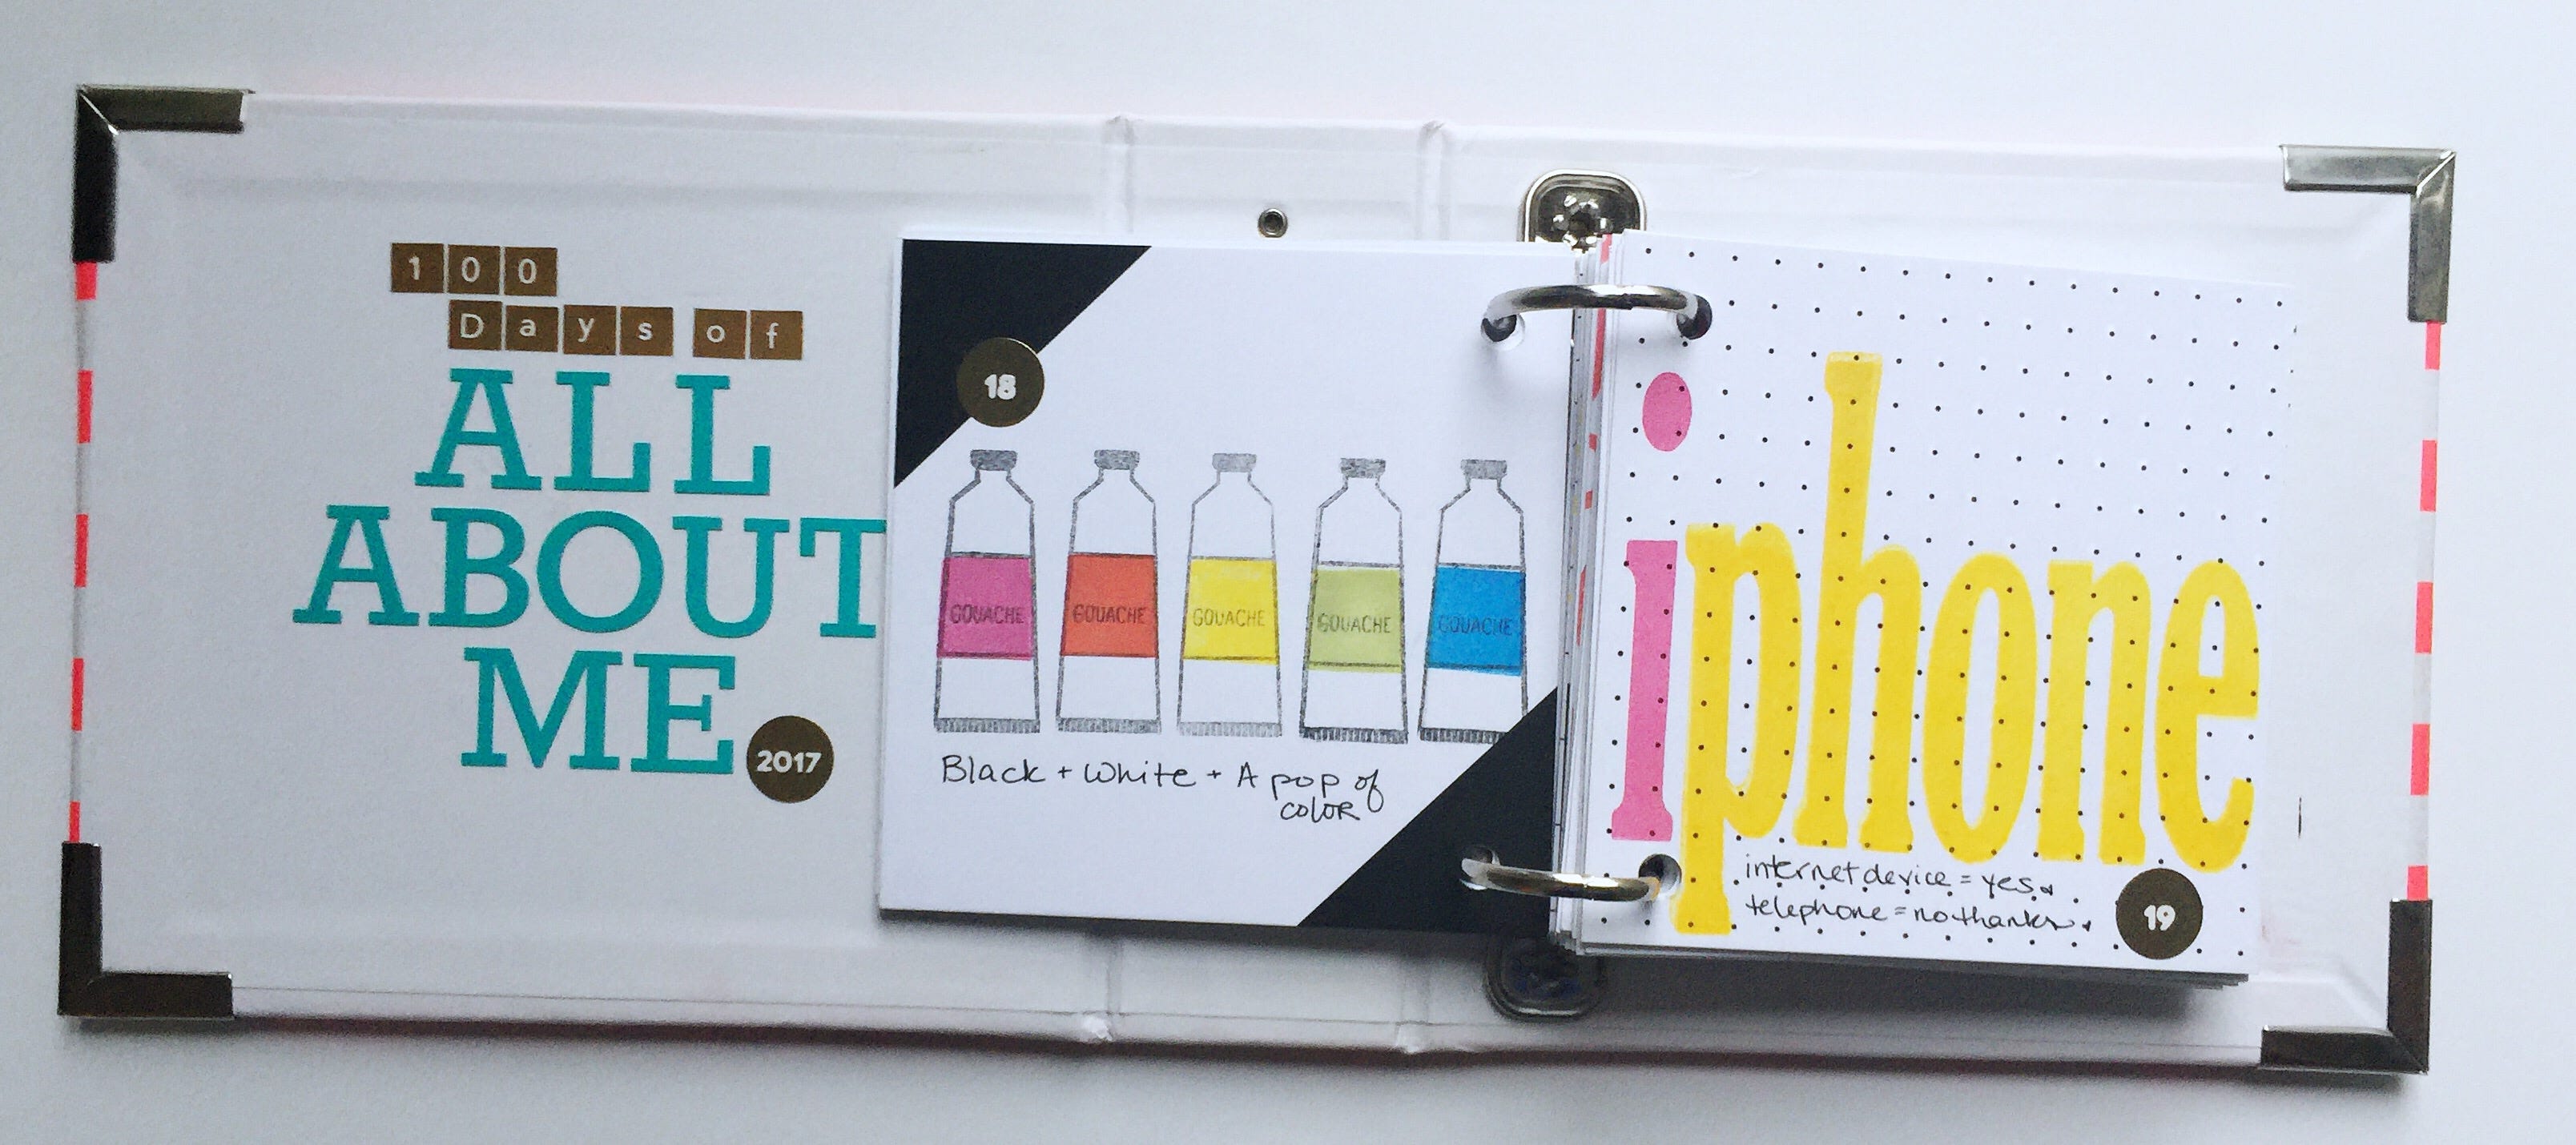 100
Days of
ALL
ABOUT
ME
2017
18
GOUACHE GOUACHE GOUACHE GOUACHE GOUACHE
Black + White + A pop of
color
iphone
internet device = yes.
telephone = no thanks.
19